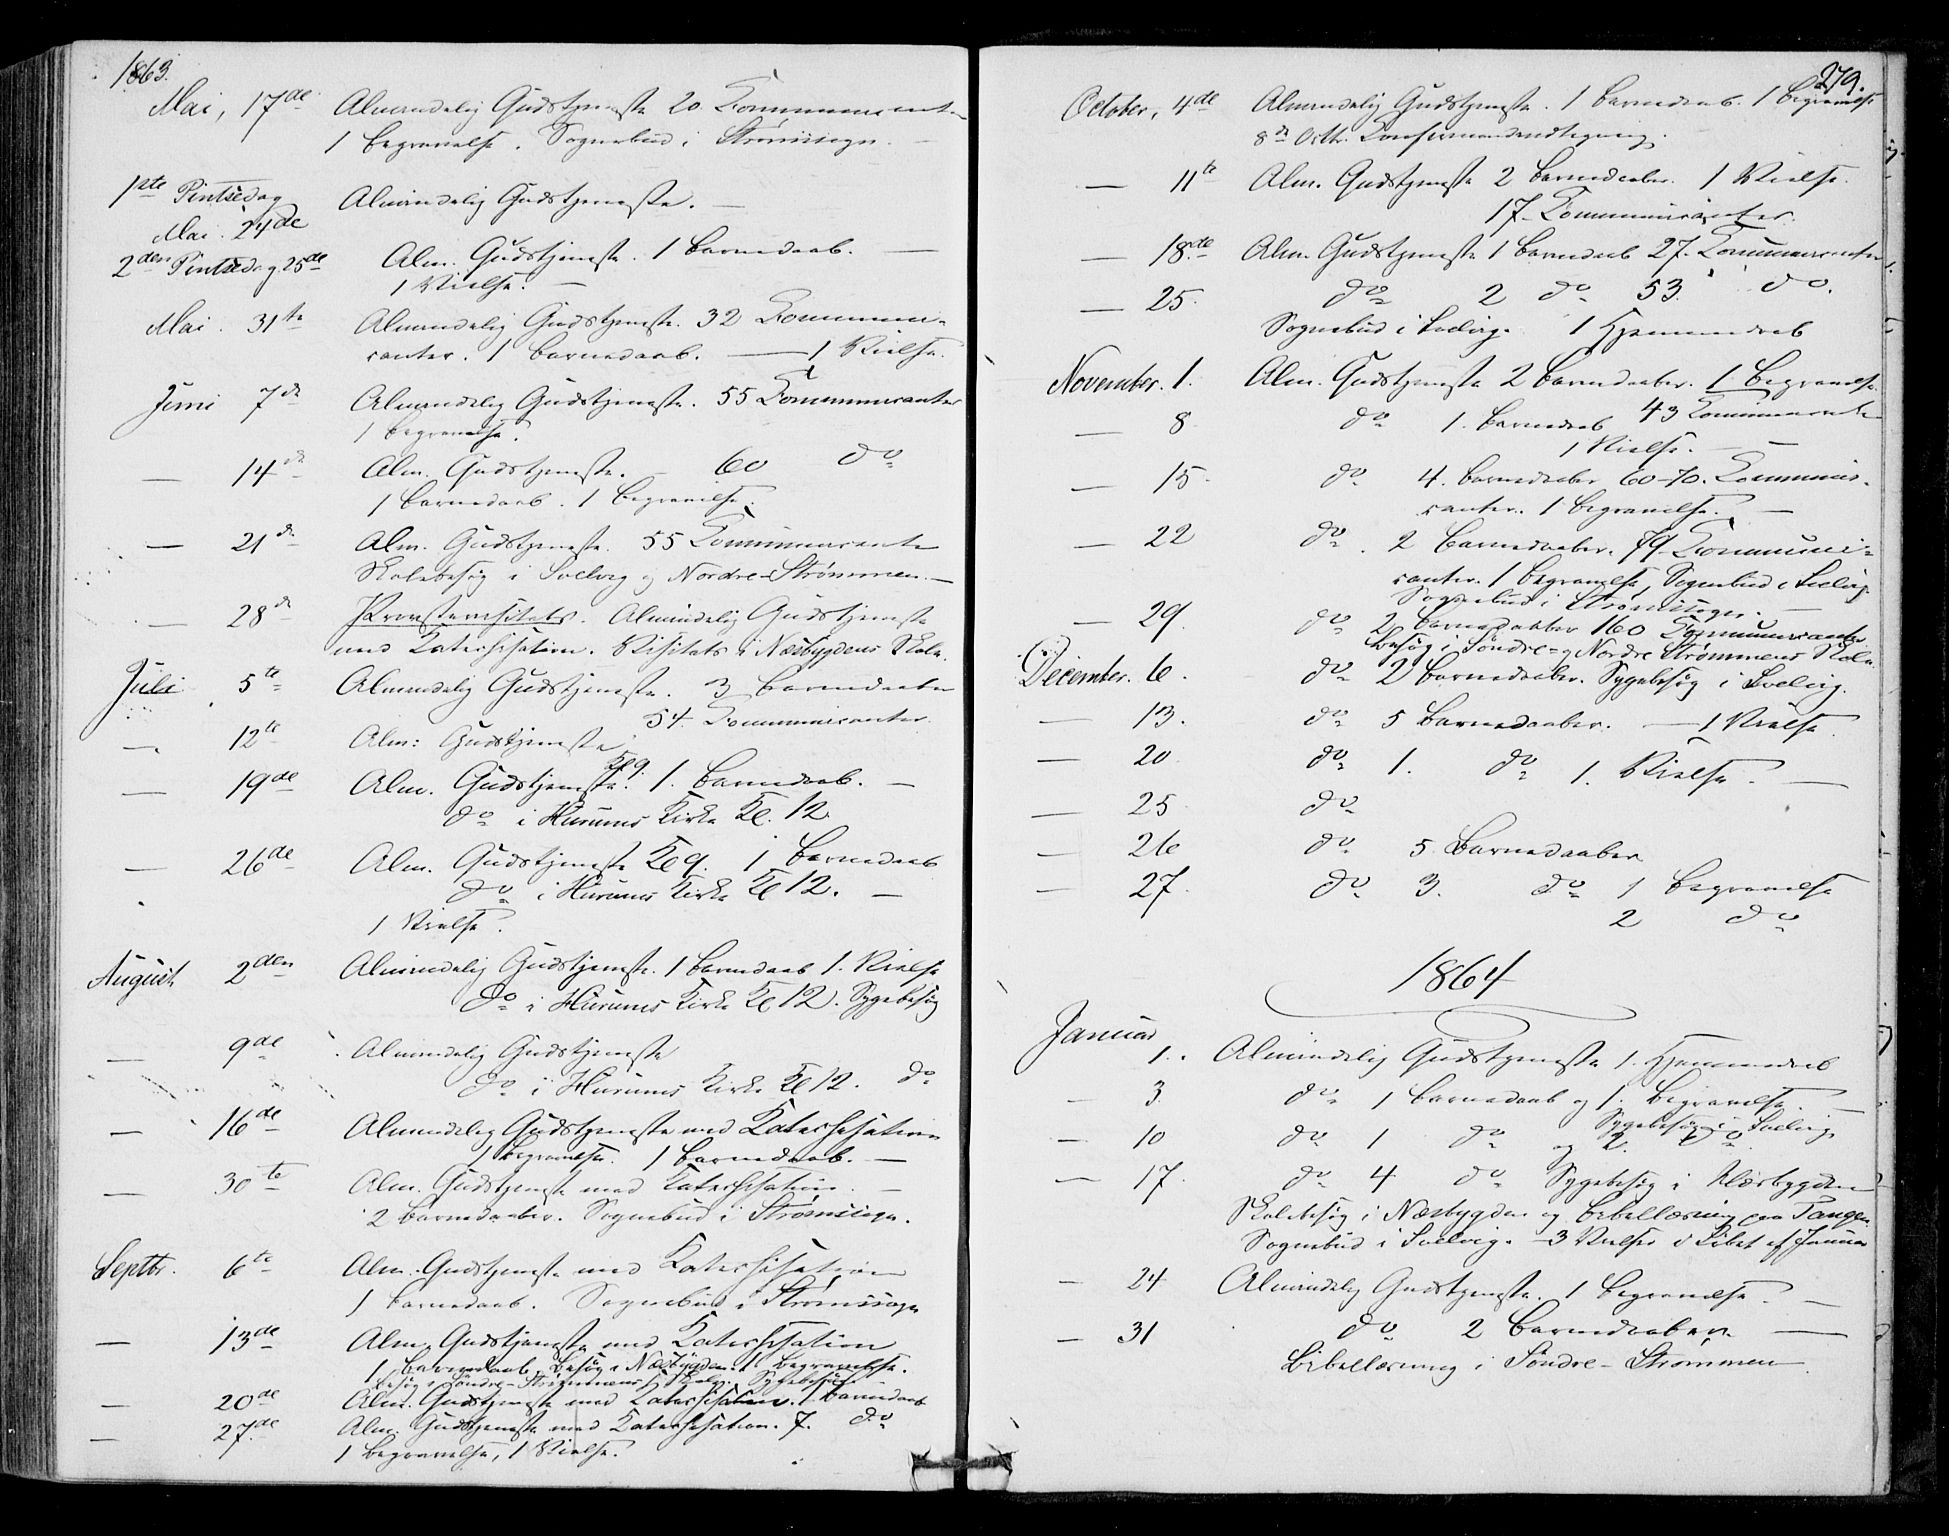 1863.
Mai, 17de Almindelig Gudstjeneste 20 Communicanter
1 Begravelse. Sognebud i Strømssogn. —
1ste Pintsedag
Mai. 24de Almindelig Gudstjeneste. —
2den Pintsedag. 25de Alm. Gudstjeneste. 1 Barnedaab. —
1 Vielse. —
Mai. 31te Almindelig Gudstjeneste. 32 Communi-
canter. 1 Barnedaab. — 1 Vielse.
Juni 7de Almindelig Gudstjeneste. 55 Communicanter
1 Begravelse.
— 14de Alm. Gudstjeneste. — 60 do
1 Barnedaab. 1 Begravelse.
— 21de Alm. Gudstjeneste. 55 Communicanter
Skolebesøg i Svelvig og Nordre-Strømmen. —
— 28de Provstevisitats. Almindelig Gudstjeneste
med Katechisation. Visitats i Næsbygdens Skole.
Juli 5te Almindelig Gudstjeneste. 3 Barnedaaber
54. Communicanter.
— 12te Alm: Gudstjeneste
— 19de Alm. Gudstjeneste Kl 9. 1. Barnedaab. —
do i Hurums Kirke Kl. 12
— 26de Alm. Gudstjeneste Kl 9. 1 Barnedaab
do i Hurums Kirke Kl 12. —
1 Vielse.
August 2den Almindelig Gudstjeneste. 1 Barnedaab 1. Vielse
do i Hurums Kirke Kl 12. Sygebesøg
— 9de Almindelig Gudstjeneste
do i Hurums Kirke Kl 12. do
— 16de Almindelig Gudstjeneste med Katechisation
1 Begravelse. 1 Barnedaab. —
— 30te Alm. Gudstjeneste med Katechisation. —
2 Barnedaaber. Sognebud i Strømssogn.
Septbr. 6te Alm. Gudstjeneste med Katechisation
1 Barnedaab. Sognebud i Strømssogn
— 13de Alm. Gudstjeneste med Katechisation
1 Barnedaab. Besøg i Næsbygden. 1. Begravelse.
Besøg i Søndre-Strømmens Skole. Sygebesøg
— 20de Alm. Gudstjeneste med Katechisation. 1 Barnedaab
— 27de Alm. Gudstjeneste med Katechisation. 7. do
1 Begravelse, 1 Vielse.
279.
October, 4de Almindelig Gudstjeneste. 1 Barnedaab. 1 Begravelse
8de Octbr. Confirmandindtegning.
— 11te Alm. Gudstjeneste 2 Barnedaaber. 1 Vielse.
17. Communicanter.
— 18de Alm. Gudstjeneste 1 Barnedaab 27. Communicanter
— 25. do 2 do 53. do.
Sognebud i Svelvig. 1 Hjemmedaab
November. 1. Alm. Gudstjeneste 2 Barnedaaber. 1 Begravelse.
— 8. do 1. Barnedaab 43 Communicanter
1 Vielse. —
— 15. do 4. Barnedaaber 60-70. Communi-
canter. 1 Begravelse. —
— 22 do. 2 Barnedaaber. 79. Communi-
canter. 1 Begravelse, Sognebud i Svelvig
Sognebud i Strømssogn. —
— 29. do 2 Barnedaaber 160 Communicanter
Besøg i Søndre- og Nordre Strømmens Skole.
December. 6. do 2 Barnedaaber. Sygebesøg i Svelvig.
— 13. do 5 Barnedaaber. — 1 Vielse
— 20 do 1. do 1. Vielse. —
— 25 do
— 26 do 5 Barnedaaber
— 27. do 3. do 1 Begravelse
2 do
1864
Januar
1. Almindelig Gudstjeneste 1. Hjemmedaab
— 3. do 1 Barnedaab og 1. Begravelse. —
Sygebesøg i Svelvig
— 10 do 1 do og 2. do.
— 17. do 4 do Sygebesøg i Næsbygden
Skolebesøg i Næsbygden og Bibellæsning paa Tangen
Sognebud i Svelvig. — 3 Vielser i Løbet af Januar
— 24 Almindelig Gudstjeneste. 1 Begravelse. —
— 31 do 2 Barnedaaber. —
Bibellæsning i Søndre-Strømmen.